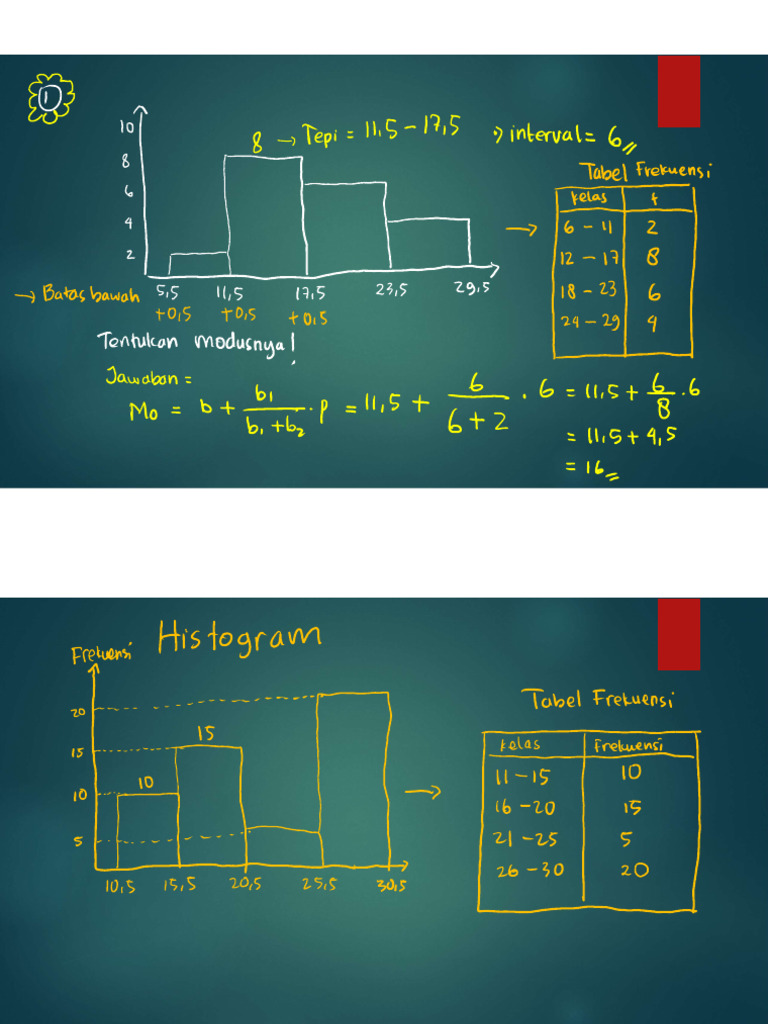 1
8 → Tepi = 11,5 - 17,5 ⇒ interval = 6 //
10
8
6
4
2
Tabel Frekuensi
Kelas f
6 - 11 2
12 - 17 8
18 - 23 6
24 - 29 4
→
→ Batas bawah 5,5 11,5 17,5 23,5 29,5
+0,5 +0,5 +0,5
Tentukan modusnya!
Jawaban =
Mo = b + b1 / (b1 + b2) . p = 11,5 + 6 / (6 + 2) . 6 = 11,5 + 6/8 . 6
= 11,5 + 4,5
= 16 //
Histogram
Frekuensi
20
15
10
5
15
10
10,5 15,5 20,5 25,5 30,5
→
Tabel Frekuensi
Kelas Frekuensi
11 - 15 10
16 - 20 15
21 - 25 5
26 - 30 20